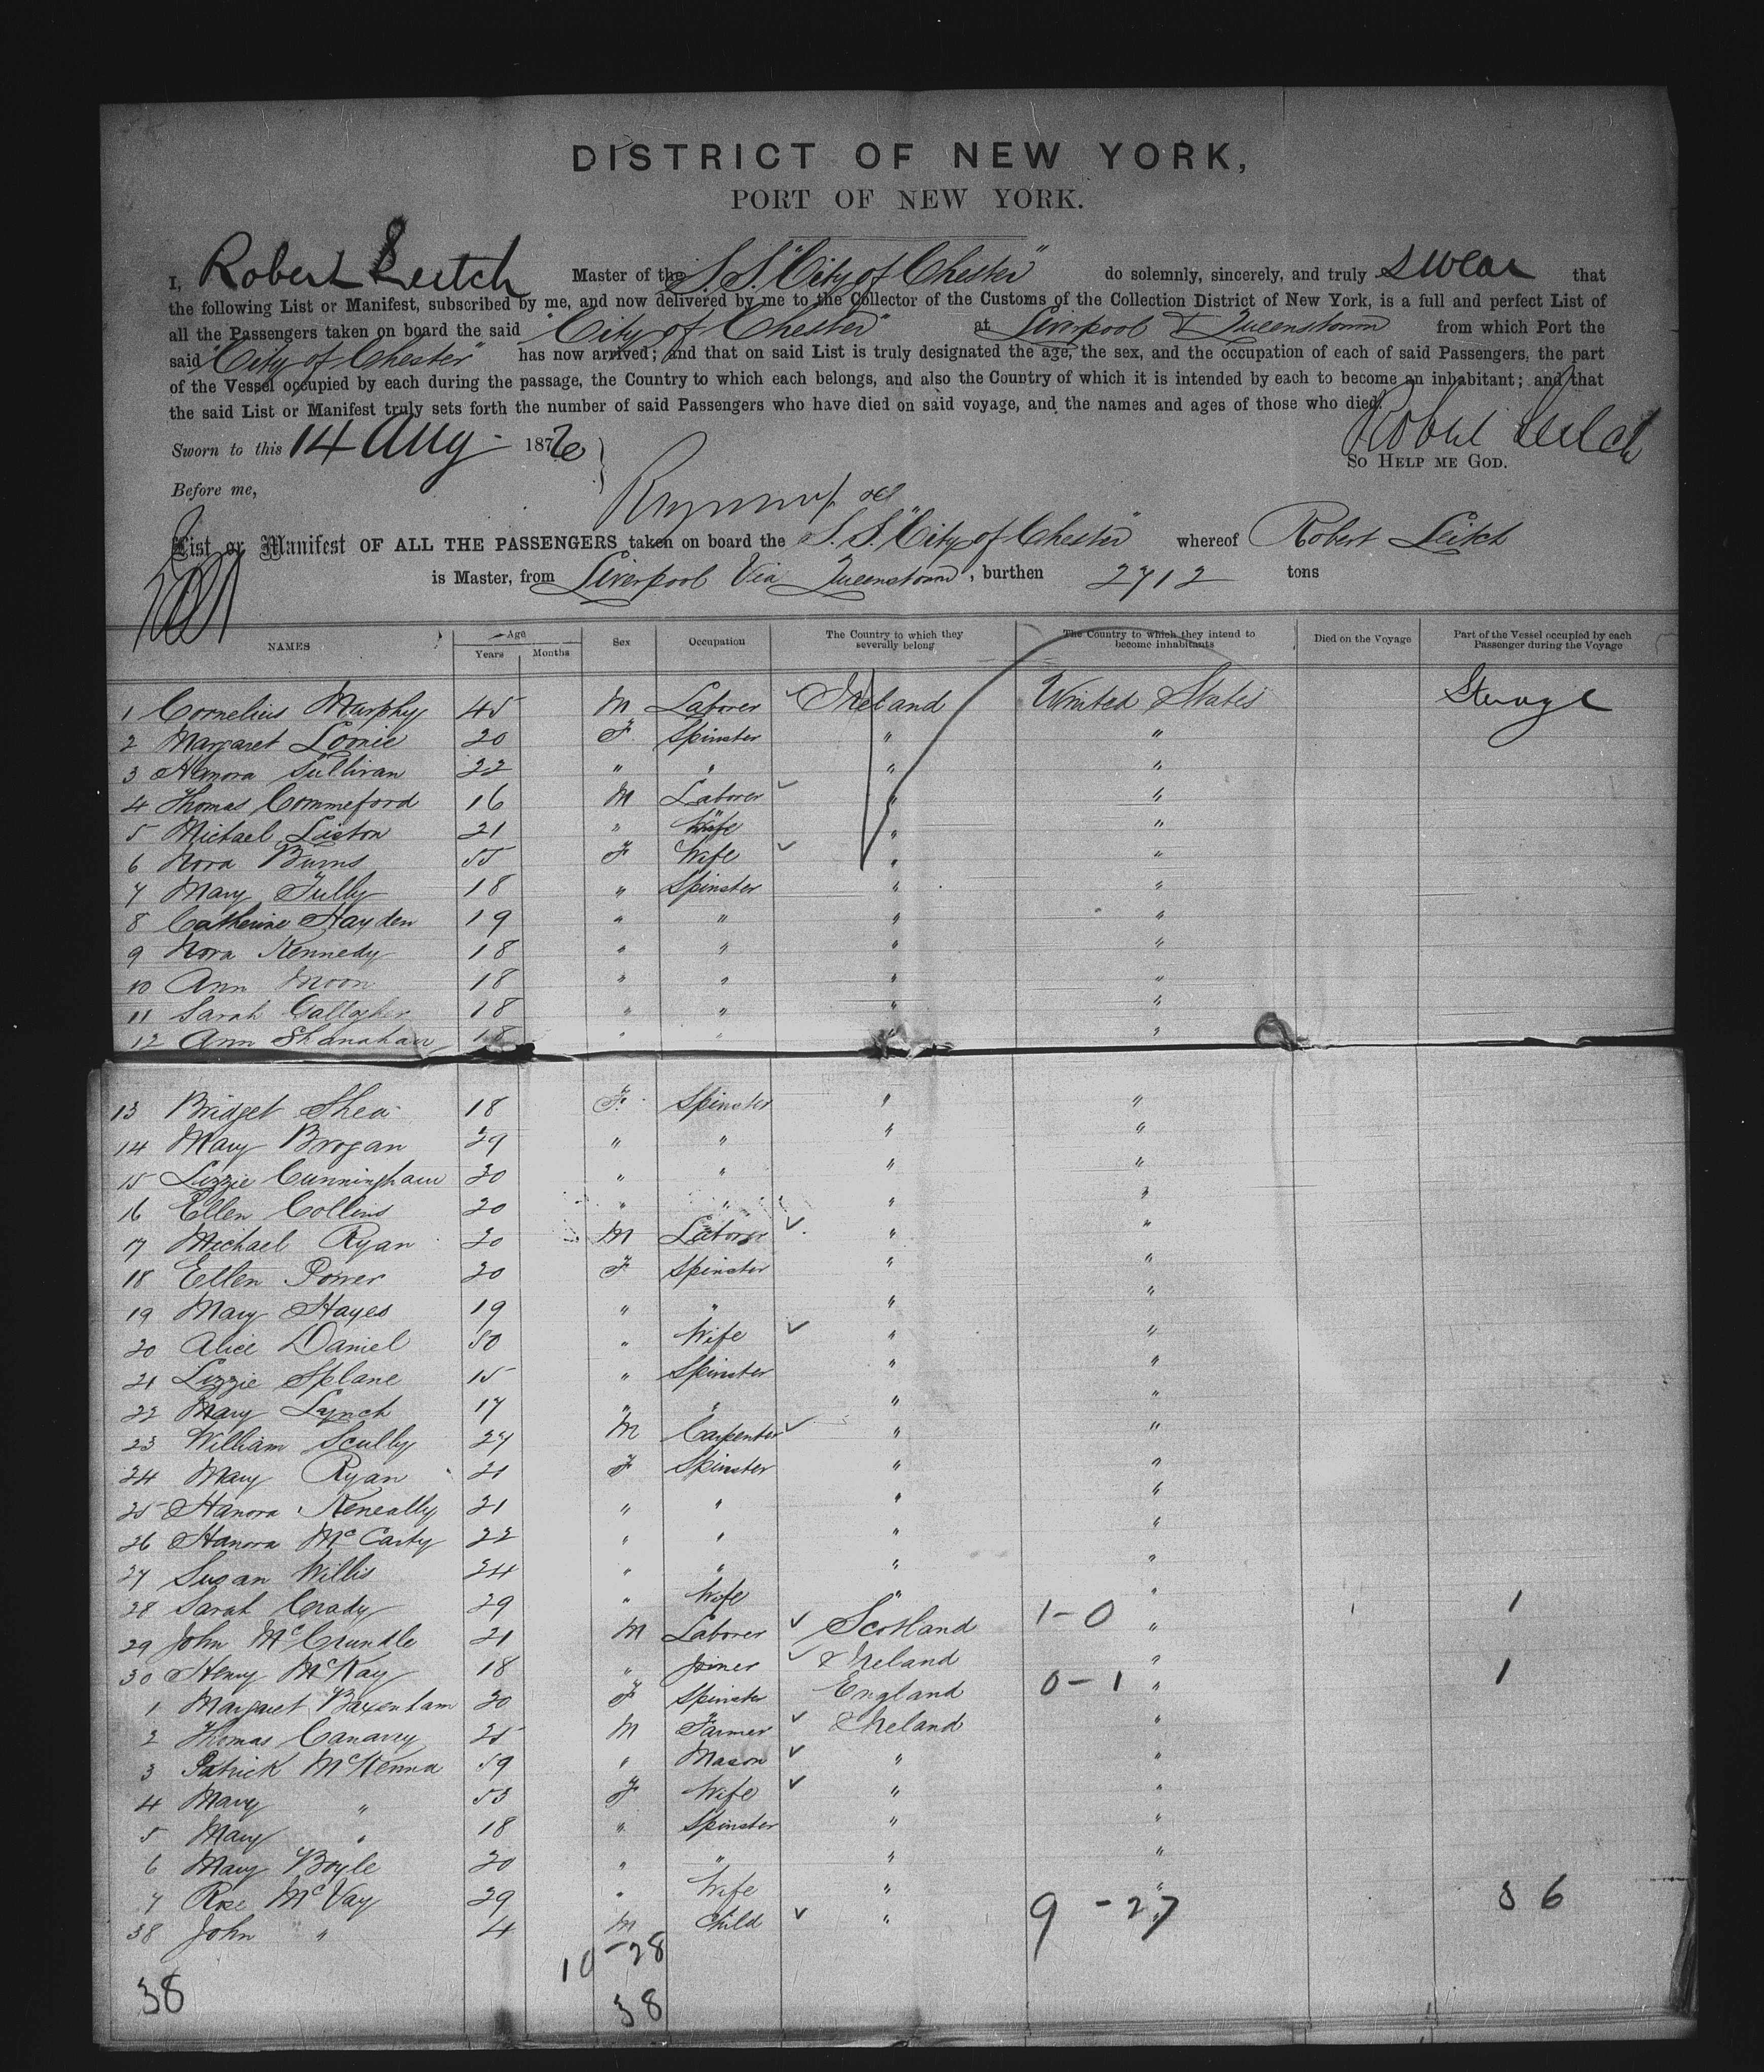 DISTRICT OF NEW YORK,
PORT OF NEW YORK.
I, Robert Leitch Master of the S.S. "City of Chester" do solemnly, sincerely, and truly swear that
the following List or Manifest, subscribed by me, and now delivered by me to the Collector of the Customs of the Collection District of New York, is a full and perfect List of
all the Passengers taken on board the said "City of Chester" at Liverpool & Queenstown from which Port the
said "City of Chester" has now arrived; and that on said List is truly designated the age, the sex, and the occupation of each of said Passengers, the part
of the Vessel occupied by each during the passage, the Country to which each belongs, and also the Country of which it is intended by each to become an inhabitant; and that
the said List or Manifest truly sets forth the number of said Passengers who have died on said voyage, and the names and ages of those who died.
Sworn to this 14 Aug - 1876 Robert Leitch
So Help me God.
Before me,
List or Manifest OF ALL THE PASSENGERS taken on board the S.S. "City of Chester" whereof Robert Leitch
is Master, from Liverpool Via Queenstown, burthen 2712 tons
NAMES Age Years Months Sex Occupation The Country to which they severally belong The Country to which they intend to become inhabitants Died on the Voyage Part of the Vessel occupied by each Passenger during the Voyage
1 Cornelius Murphy 45 M Laborer Ireland United States Sterage
2 Margaret Loonie 20 F Spinster " "
3 Hanora Sullivan 22 " " " "
4 Thomas Commeford 16 M Laborer " "
5 Michael Liston 21 " " "
6 Nora Burns 55 F Wife " "
7 Mary Tully 18 " Spinster " "
8 Catherine Hayden 19 " " " "
9 Nora Kennedy 18 " " " "
10 Ann Moon 18 " " " "
11 Sarah Gallagher 18 " " " "
12 Ann Shanahan 18 " " " "
13 Bridget Shea 18 F. Spinster " "
14 Mary Brogan 29 " " " "
15 Lizzie Cunningham 20 " " " "
16 Ellen Collins 20 " " " "
17 Michael Ryan 20 M Laborer " "
18 Ellen Power 20 F Spinster " "
19 Mary Hayes 19 " " " "
20 Alice Daniel 50 " Wife " "
21 Lizzie Splane 15 " Spinster " "
22 Mary Lynch 17 " " " "
23 William Scully 27 M Carpenter " "
24 Mary Ryan 21 F Spinster " "
25 Hanora Keneally 21 " " " "
26 Hanora McCarty 22 " " " "
27 Susan Willis 24 " " " "
28 Sarah Grady 29 " Wife " "
29 John McCrundle 21 M Laborer Scotland 1-0 " 1
30 Henry McKay 18 " Joiner Ireland "
1 Margaret Baxenham 20 F Spinster England 0-1 " 1
2 Thomas Canavey 25 M Farmer Ireland "
3 Patrick McKenna 59 " Mason " "
4 Mary " 53 F Wife " "
5 Mary " 18 " Spinster " "
6 Mary Boyle 20 " " " "
7 Rose McVay 29 " Wife " "
38 John " 4 M Child " 9-27 " 36
10-28
38 38